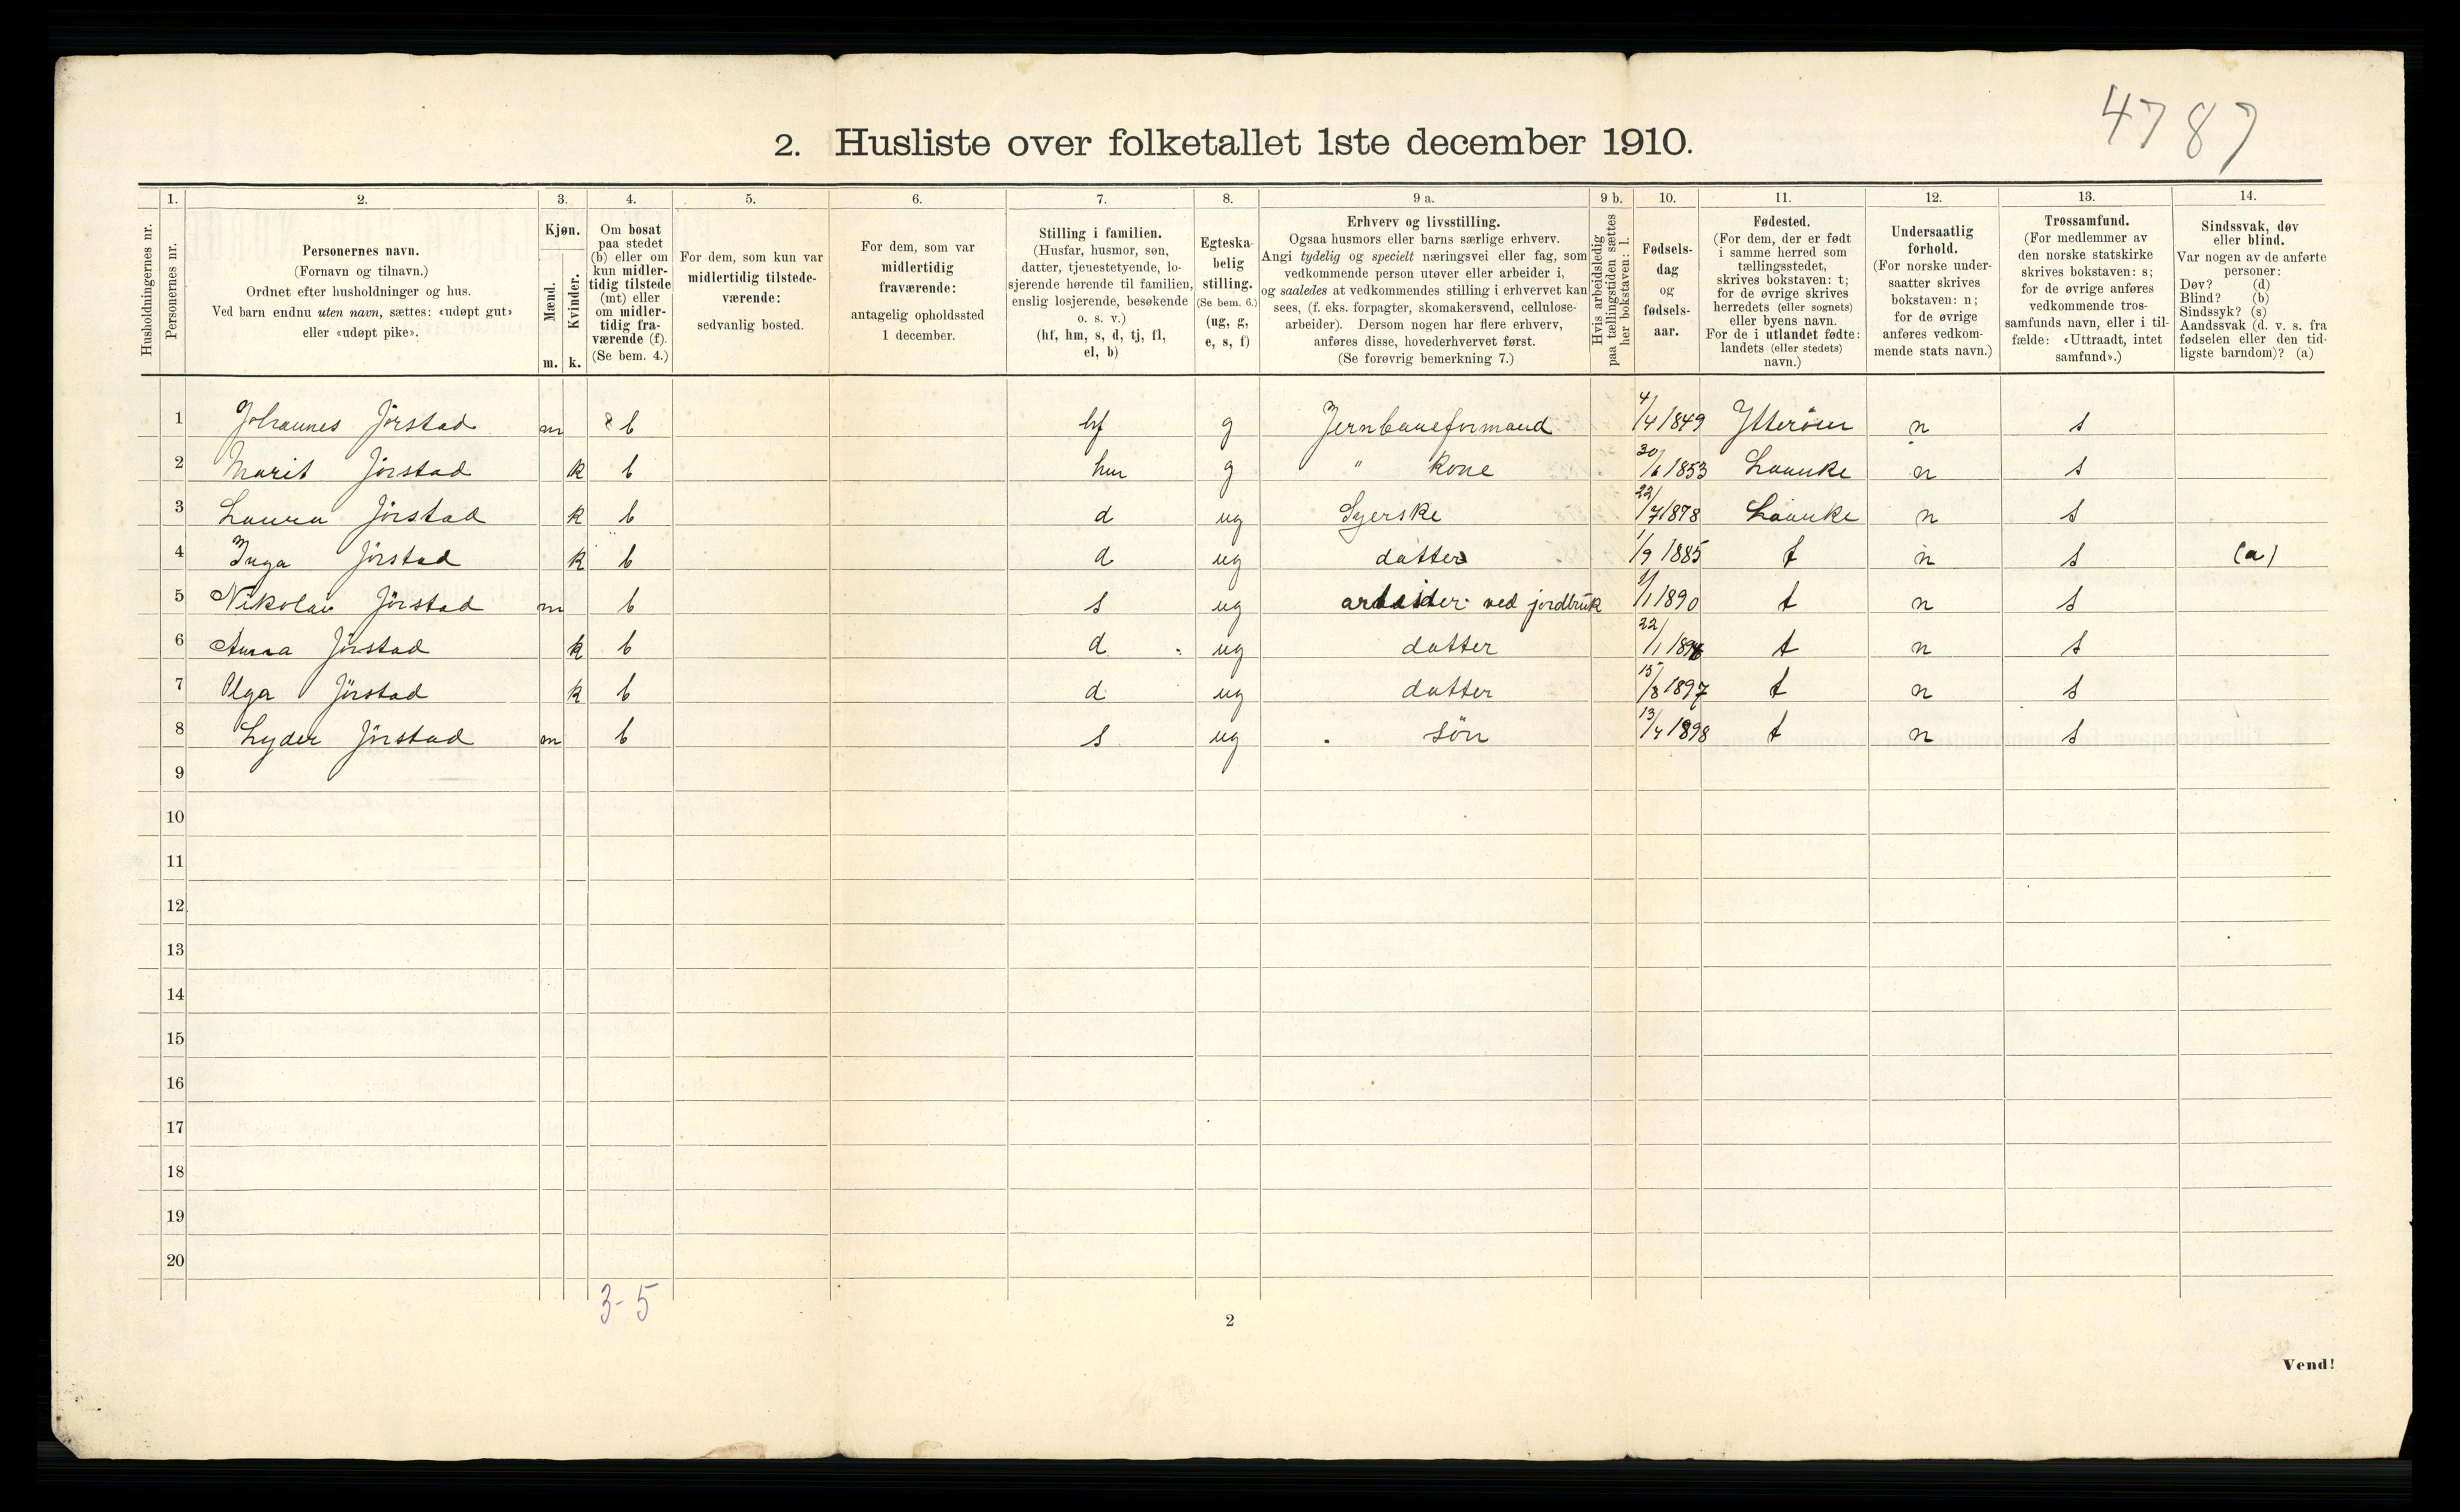 4787
2. Husliste over folketallet 1ste december 1910.
Husholdningernes nr.
1.
Personernes nr.
2.
Personernes navn.
(Fornavn og tilnavn.)
Ordnet efter husholdninger og hus.
Ved barn endnu uten navn, sættes: «udøpt gut»
eller «udøpt pike».
3.
Kjøn.
Mænd.
Kvinder.
m. k.
4.
Om bosat
paa stedet
(b) eller om
kun midler-
tidig tilstede
(mt) eller
om midler-
tidig fra-
værende (f).
(Se bem. 4.)
5.
For dem, som kun var
midlertidig tilstede-
værende:
sedvanlig bosted.
6.
For dem, som var
midlertidig
fraværende:
antagelig opholdssted
1 december.
7.
Stilling i familien.
(Husfar, husmor, søn,
datter, tjenestetyende, lo-
sjerende hørende til familien,
enslig losjerende, besøkende
o. s. v.)
(hf, hm, s, d, tj, fl,
el, b)
8.
Egteska-
belig
stilling.
(Se bem. 6.)
(ug, g,
e, s, f)
9 a.
Erhverv og livsstilling.
Ogsaa husmors eller barns særlige erhverv.
Angi tydelig og specielt næringsvei eller fag, som
vedkommende person utøver eller arbeider i,
og saaledes at vedkommendes stilling i erhvervet kan
sees, (f. eks. forpagter, skomakersvend, cellulose-
arbeider). Dersom nogen har flere erhverv,
anføres disse, hovederhvervet først.
(Se forøvrig bemerkning 7.)
9 b.
Hvis arbeidsledig
paa tællingstiden sættes
her bokstaven: l.
10.
Fødsels-
dag
og
fødsels-
aar.
11.
Fødested.
(For dem, der er født
i samme herred som
tællingsstedet,
skrives bokstaven: t;
for de øvrige skrives
herredets (eller sognets)
eller byens navn.
For de i utlandet fødte:
landets (eller stedets)
navn.)
12.
Undersaatlig
forhold.
(For norske under-
saatter skrives
bokstaven: n;
for de øvrige
anføres vedkom-
mende stats navn.)
13.
Trossamfund.
(For medlemmer av
den norske statskirke
skrives bokstaven: s;
for de øvrige anføres
vedkommende tros-
samfunds navn, eller i til-
fælde: «Uttraadt, intet
samfund».)
14.
Sindssvak, døv
eller blind.
Var nogen av de anførte
personer:
Døv? (d)
Blind? (b)
Sindssyk? (s)
Aandssvak (d. v. s. fra
fødselen eller den tid-
ligste barndom)? (a)
1 Johannes Jörstad m b hf g Jernbaneformand 4/4 1849 Ytteröen n s
2 Marit Jörstad k b hm g " kone 30/6 1853 Laanke n s
3 Laura Jörstad k b d ug Syerske 22/7 1878 Laanke n s
4 Inga Jörstad k b d ug datter 1/9 1885 t n s (a)
5 Nikolai Jörstad m b s ug arbeider ved jordbruk 1/1 1890 t n s
6 Anna Jörstad k b d ug datter 22/1 t n s
7 Olga Jörstad k b d ug datter 15/8 1897 t n s
8 Lyder Jörstad m b s ug sön 13/4 1898 t n s
9
10
11
12
13
14
15
16
17
18
19
20
3-5
2
Vend!